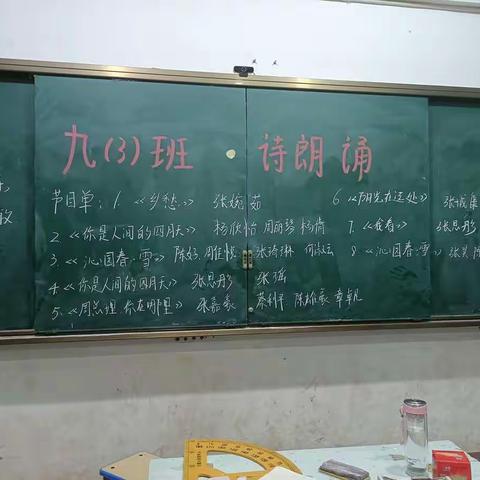 九(3)班·诗朗诵
节目单: 1.《乡愁》 张婉茹
2.《你是人间的四月天》 杨欣怡 周丽琴 杨倩
3.《沁园春·雪》 陈好 周雅悦 张琦琳
4.《你是人间的四月天》 张思彤 张瑶
5.《周总理,你在哪里》 张嘉豪 蔡利平 陈雄豪
6.《阳光在远处》 张
7.《我看》 张思彤
8.《沁园春·雪》 张昊